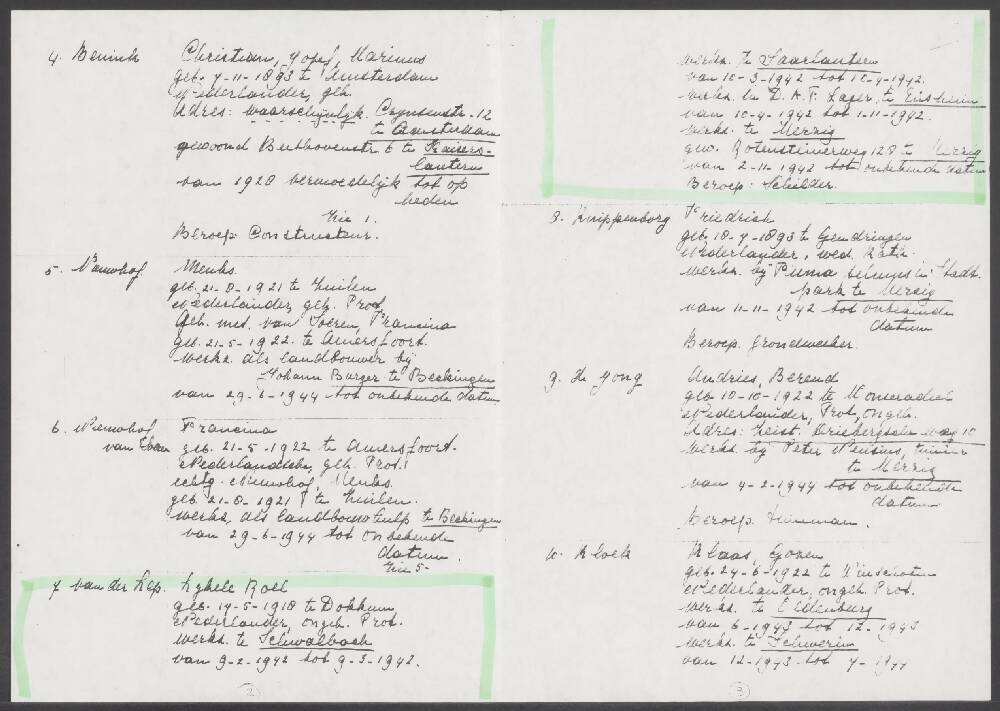 4. Bennink Christiaan, Josef, Marinus
geb. 7-11-1893 te Amsterdam
Nederlander, geh.
Adres: waarschijnlijk -12
te Amsterdam
gewoond Beethovenstr 6 te Kaisers-
lautern
van 1928 vermoedelijk tot op
heden
Zie 1.
Beroep: Constructeur.
5. Nieuwhof Menks.
geb. 21-8-1921 te Zuilen
Nederlander, geh. Prot.
Geh. met. van Soeren, Francina
geb. 21-5-1922 te Amersfoort.
werkz. als landbouwer bij
Johann Burger te Beckingen
van 29-6-1944 tot onbekende datum.
6. Nieuwhof Francina
van geb. 21-5-1922 te Amersfoort.
Nederlandsche, geh. Prot.
echtg. Nieuwhof, Menks.
geb. 21-8-1921 te Zuilen.
werkz. als landbouwhulp te Beckingen
van 29-6-1944 tot onbekende
datum.
Zie 5-
7 van der Lep. Lykele Roel
geb. 14-5-1918 te Dokkum,
Nederlander, ongeh. Prot.
werkz. te Schwalbach
van 9-2-1942 tot 9-3-1942.
2
werkz. te Saarlautern
van 10-3-1942 tot 10-4-1942.
werkz. in D.A.F. Lager, te Ensheim
van 10-4-1942 tot 1-11-1942.
werkz. te Merzig
gew. Rotensteinerweg 128 te Merzig
van 2-11-1942 tot onbekende datum
Beroep: Schilder.
8. Knippenborg Friedrich
geb. 18-7-1893 te Gendringen
Nederlander, wed. Kath.
werkz. bij Puma Stadt-
park te Merzig
van 11-11-1942 tot onbekende
datum
Beroep. Grondwerker.
9. de Jong Andries, Berend
geb 10-10-1922 te
Nederlander, Prot, ongeh.
Adres: Zeist. Driebergsche weg 10
werkz. bij Peter
te Merzig
van 4-2-1944 tot onbekende
datum
Beroep Tuinman.
10. Klock Klaas, Gozen
geb. 24-6-1922 te Winschoten
Nederlander, ongeh. Prot.
werkz. te Eldenburg
van 6-1943 tot 12-1943
werkz. te Schwerin
van 12-1943 tot 4-1944
3